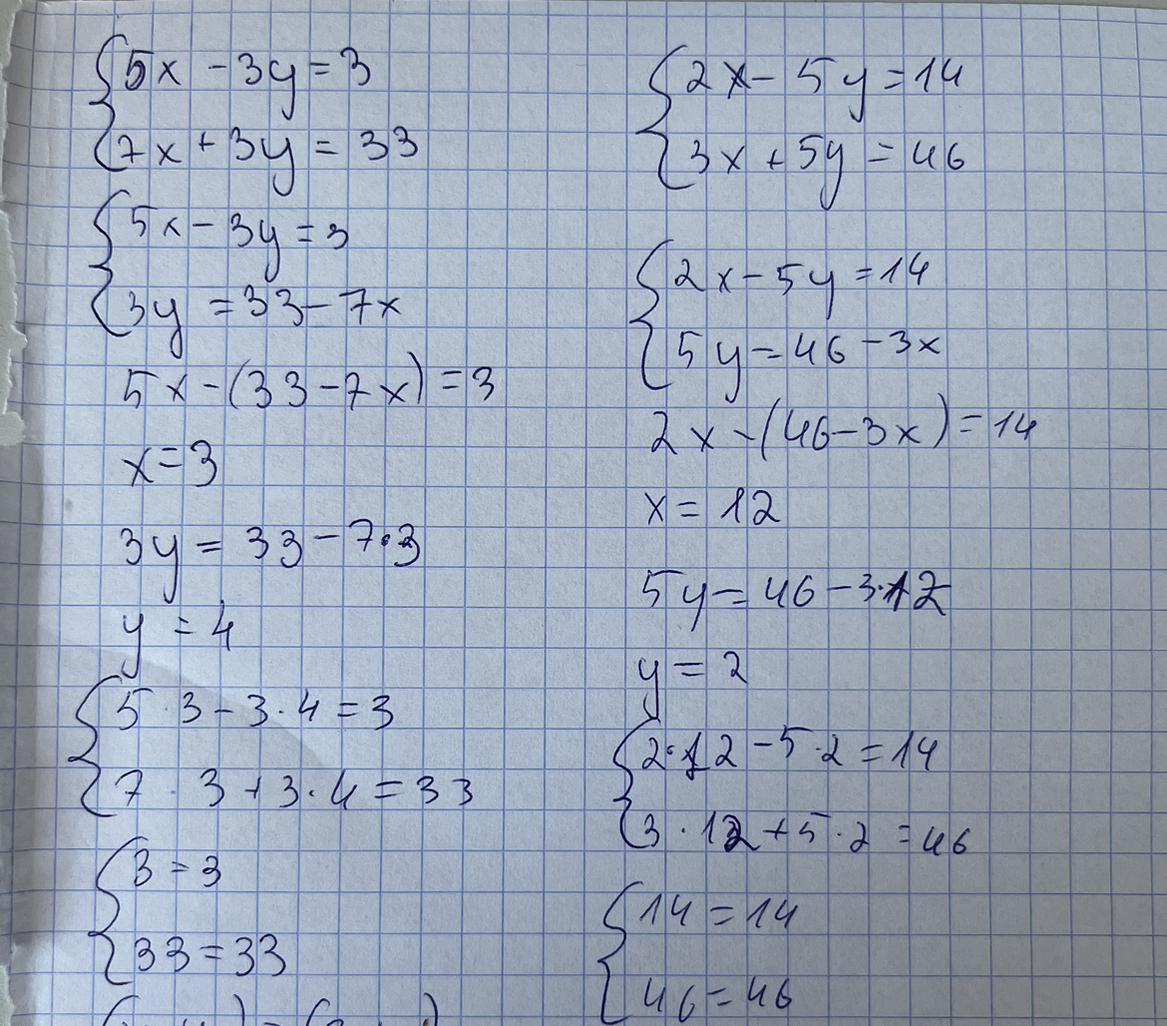 5x - 3y = 3
7x + 3y = 33
5x - 3y = 3
3y = 33 - 7x
5x - (33 - 7x) = 3
x = 3
3y = 33 - 7·3
y = 4
5·3 - 3·4 = 3
7·3 + 3·4 = 33
3 = 3
33 = 33
2x - 5y = 14
3x + 5y = 46
2x - 5y = 14
5y = 46 - 3x
2x - (46 - 3x) = 14
x = 12
5y = 46 - 3·12
y = 2
2·12 - 5·2 = 14
3·12 + 5·2 = 46
14 = 14
46 = 46